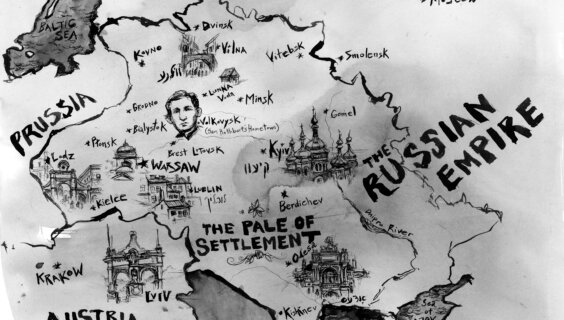 Moscow
BALTIC
SEA
Dvinsk
Kovno
VILNA
Vitebsk
Smolensk
PRUSSIA
Grodno
Minsk
Bialystok
Volkovysk
Gomel
Plonsk
Brest Litovsk
THE
RUSSIAN
EMPIRE
Lodz
WARSAW
Kyiv
Kielce
LUBLIN
Berdichev
THE PALE OF
SETTLEMENT
Dnipro River
Odessa
KRAKOW
LVIV
Kishinev
Sea
of
AUSTRIA